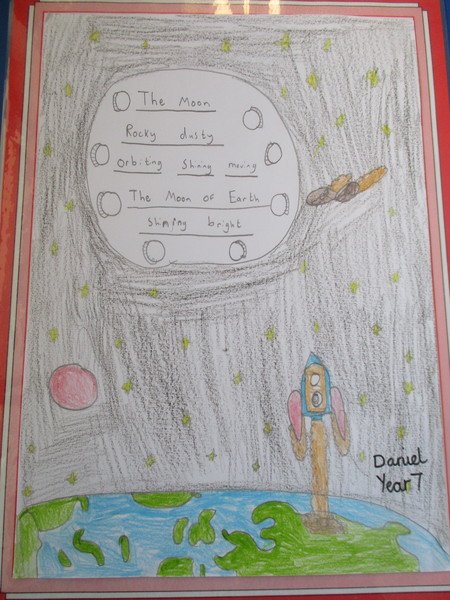 The Moon
Rocky dusty
Orbiting Shining moving
The Moon of Earth
Shining bright
Daniel
Year 7